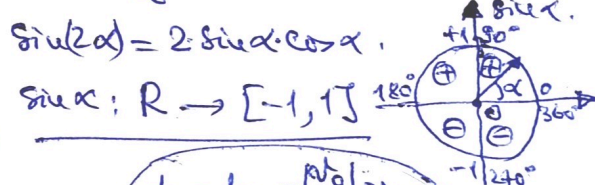 sin(2α) = 2·sinα·cosα.
sinα : R → [-1, 1]
sinα.
+1 90°
+ +
180° α 0
0 360°
- -
-1 270°